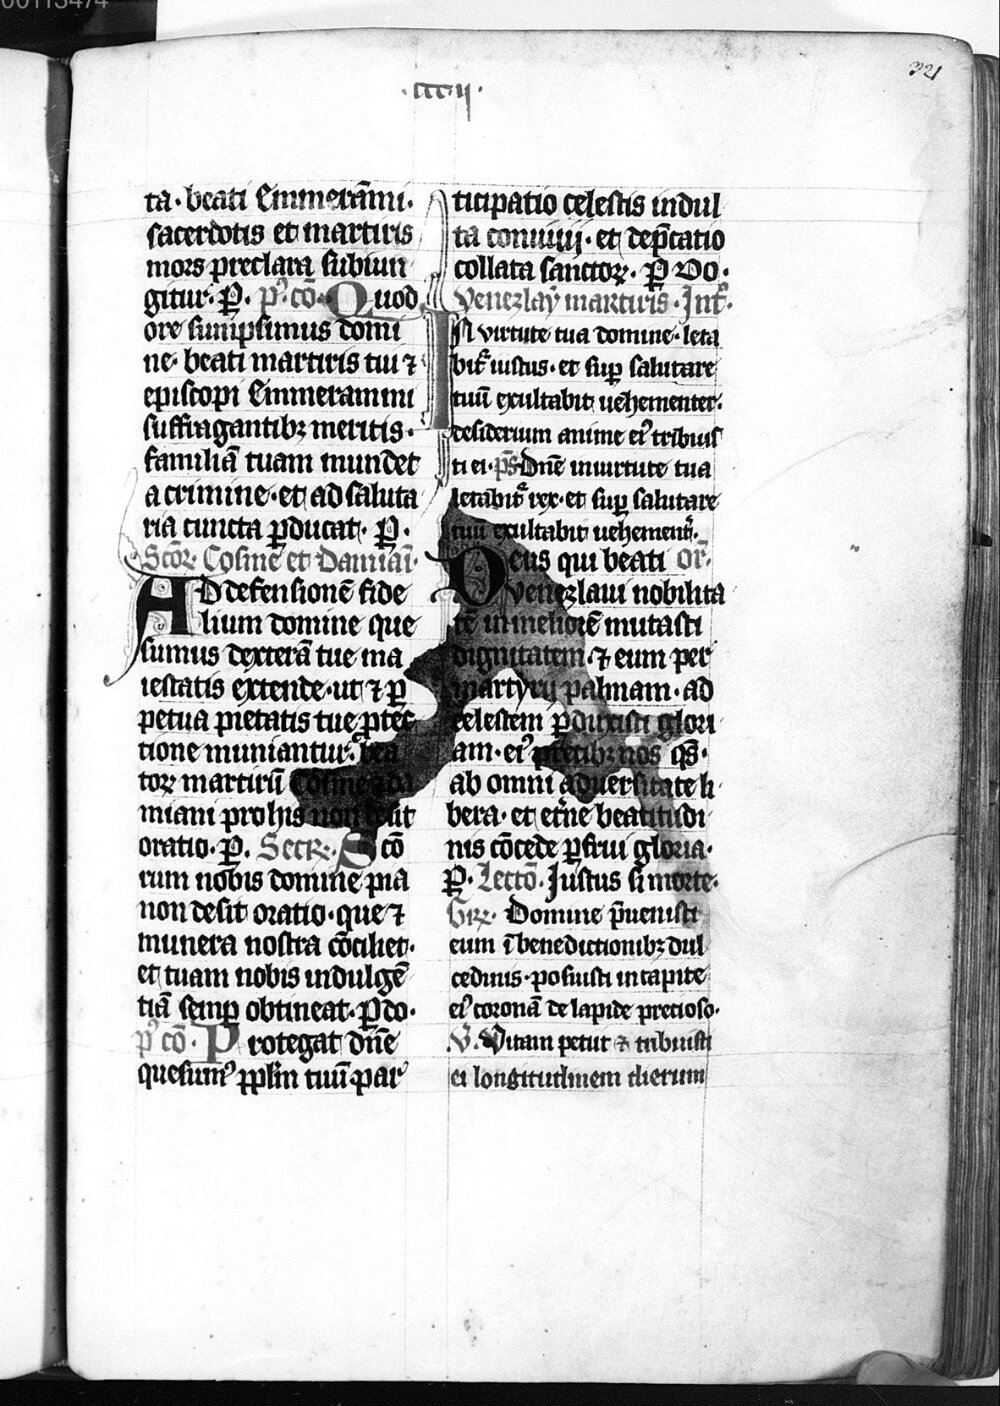 00113474
321
·ccciı·
ta· beati Emmerāmi·
sacerdotis et martiris
mors preclara subiun
gitur· P. p͛ cō· Quod
ore sumpsimus domi
ne· beati martiris tui ⁊
episcopi Emmerammi
suffragantibꝫ meritis·
familiā tuam mundet
a crimine· et ad saluta
ria cuncta ꝑducat· P.
Scōꝝ Cosme et Damiāi·
AD defensionē fide
lium domine que
sumus dexterā tue ma
iestatis extende· ut ⁊ ꝑ
petua pietatis tue ꝓtec
tione muniantur· bea
toꝝ martirū Cosme ⁊ da
miani pro his non desit
oratio· P. Secr̄· Scō
rum nobis domine pia
non desit oratio· que ⁊
munera nostra cōciliet·
et tuam nobis indulgē
tiā semꝑ obtineat· P do·
p͛ cō· Protegat dn̄e
quesumꝰ ꝓplm̄ tuū par
ticipatio celestis indul
ta conuiuij· et dep̄catio
collata sanctoꝝ· P Do·
Venezlay martiris· Int͛·
IN virtute tua domine· leta
bit͛ iustus· et suꝑ salutare
tuū exultabit uehementer·
desiderium anime eiꝰ tribuis
ti ei· p̄s Dn̄e in uirtute tua
letabit͛ rex· et suꝑ salutare
tuū exultabit uehement͛·
Deus qui beati or̄·
Venezlaui nobilita
tē in meliorē mutasti
dignitatem· ⁊ eum per
martyrij palmam· ad
celestem ꝑduxisti glori
am· eiꝰ precibꝫ nos qs̄·
ab omni aduersitate li
bera· et et͛ne beatitudi
nis cōcede ꝑfrui gloria·
P. Lectō· Iustus si morte·
Gr̄· Domine p̄uenisti
eum ī benedictionibꝫ dul
cedinis· posuisti in capite
eiꝰ coronā de lapide precioso·
V̄· Vitam petiit ⁊ tribuisti
ei longitudinem dierum